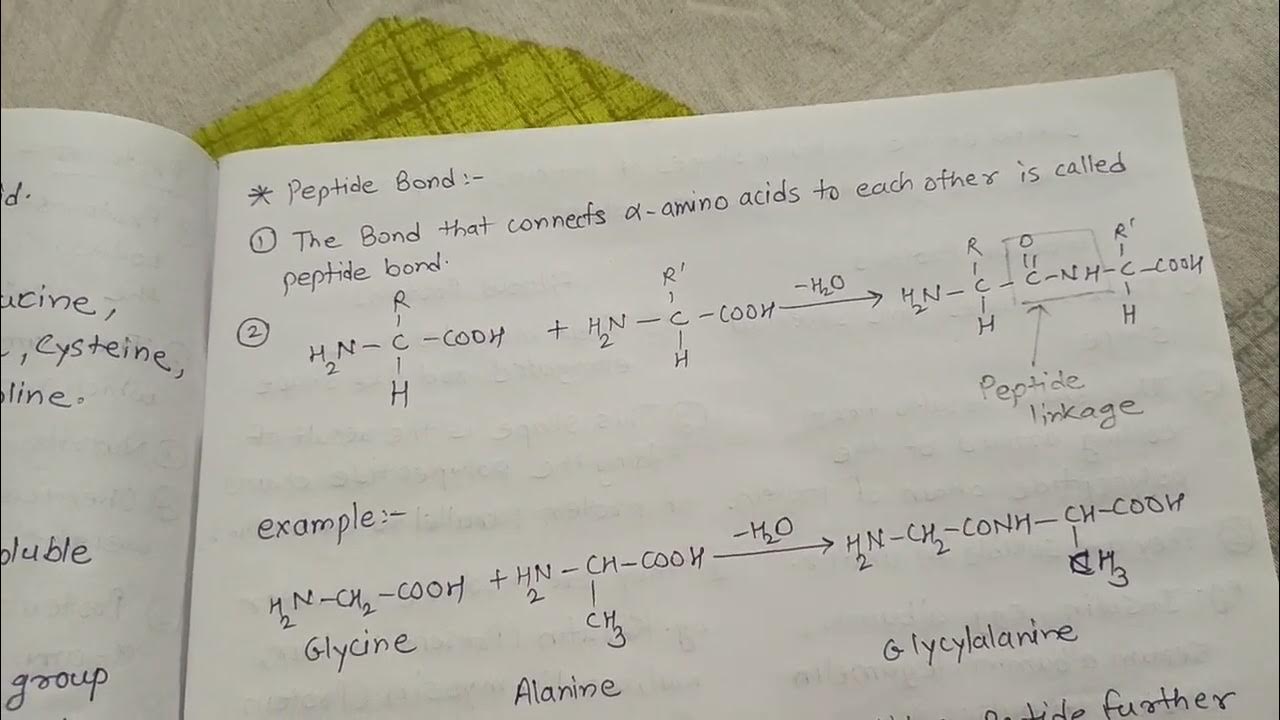 d.
ucine,
, Cysteine,
line.
oluble
group
* Peptide Bond:-
① The Bond that connects α-amino acids to each other is called
peptide bond.
R R' R O R'
② H₂N-C-COOH + H₂N-C-COOH -H₂O → H₂N-C-C-NH-C-COOH
H H H H
Peptide
linkage
example:-
H₂N-CH₂-COOH + H₂N-CH-COOH -H₂O → H₂N-CH₂-CONH-CH-COOH
CH₃ CH₃
Glycine Alanine Glycylalanine
further